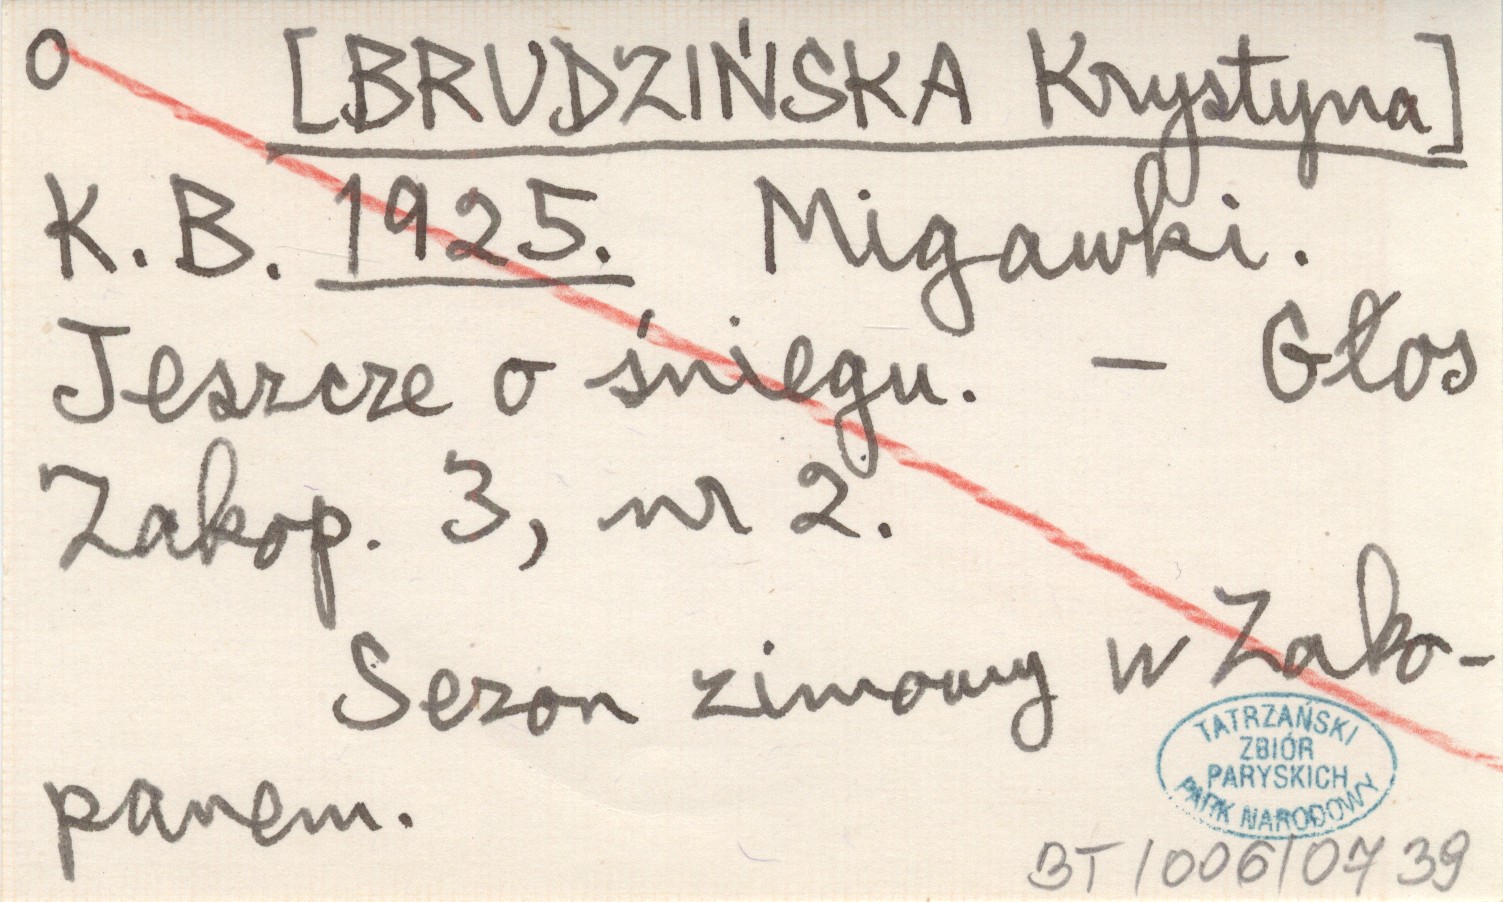 o [BRUDZIŃSKA Krystyna]
K. B. 1925. Migawki.
Jeszcze o śniegu. – Głos
Zakop. 3, nr 2.
Sezon zimowy w Zako-
panem.
TATRZAŃSKI
ZBIÓR
PARYSKICH
PARK NARODOWY
BT/006/0739